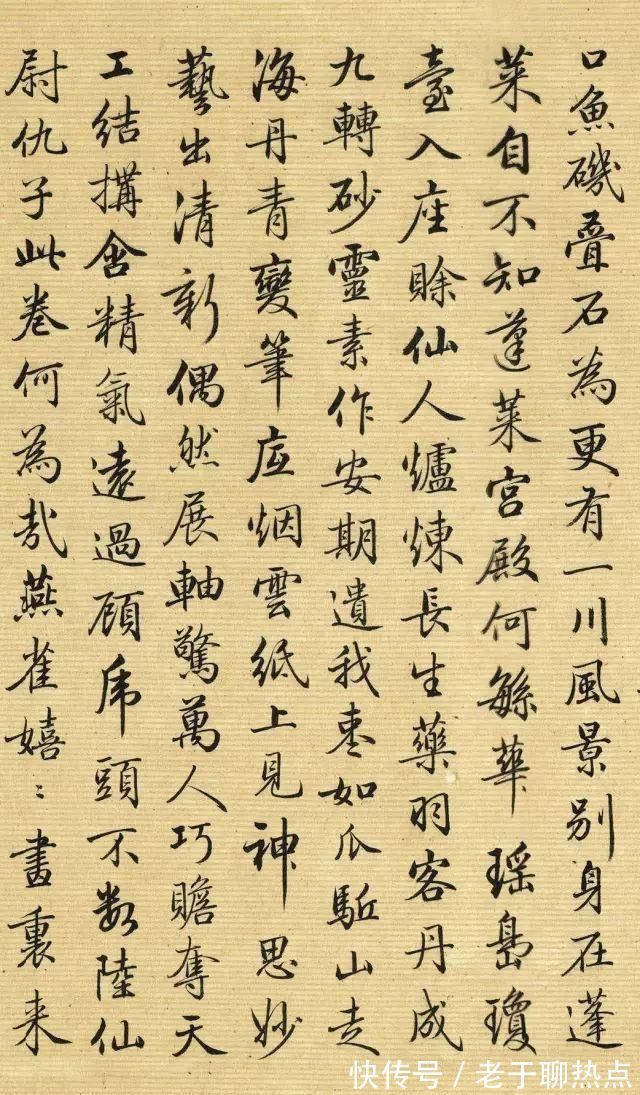 口魚磯疊石為更有一川風景别身在蓬
萊自不知蓬萊宫殿何繇華瑶島瓊
臺入座賖仙人爐煉長生藥羽客丹成
九轉砂靈素作安期遺我枣如瓜驅山走
海丹青變筆底烟雲紙上見神思妙
藝出清新偶然展軸驚萬人巧贍奪天
工結搆含精氣遠過顧虎頭不數陸仙
尉仇子此卷何為哉燕雀嬉〻畫裏来
快传号／老于聊热点